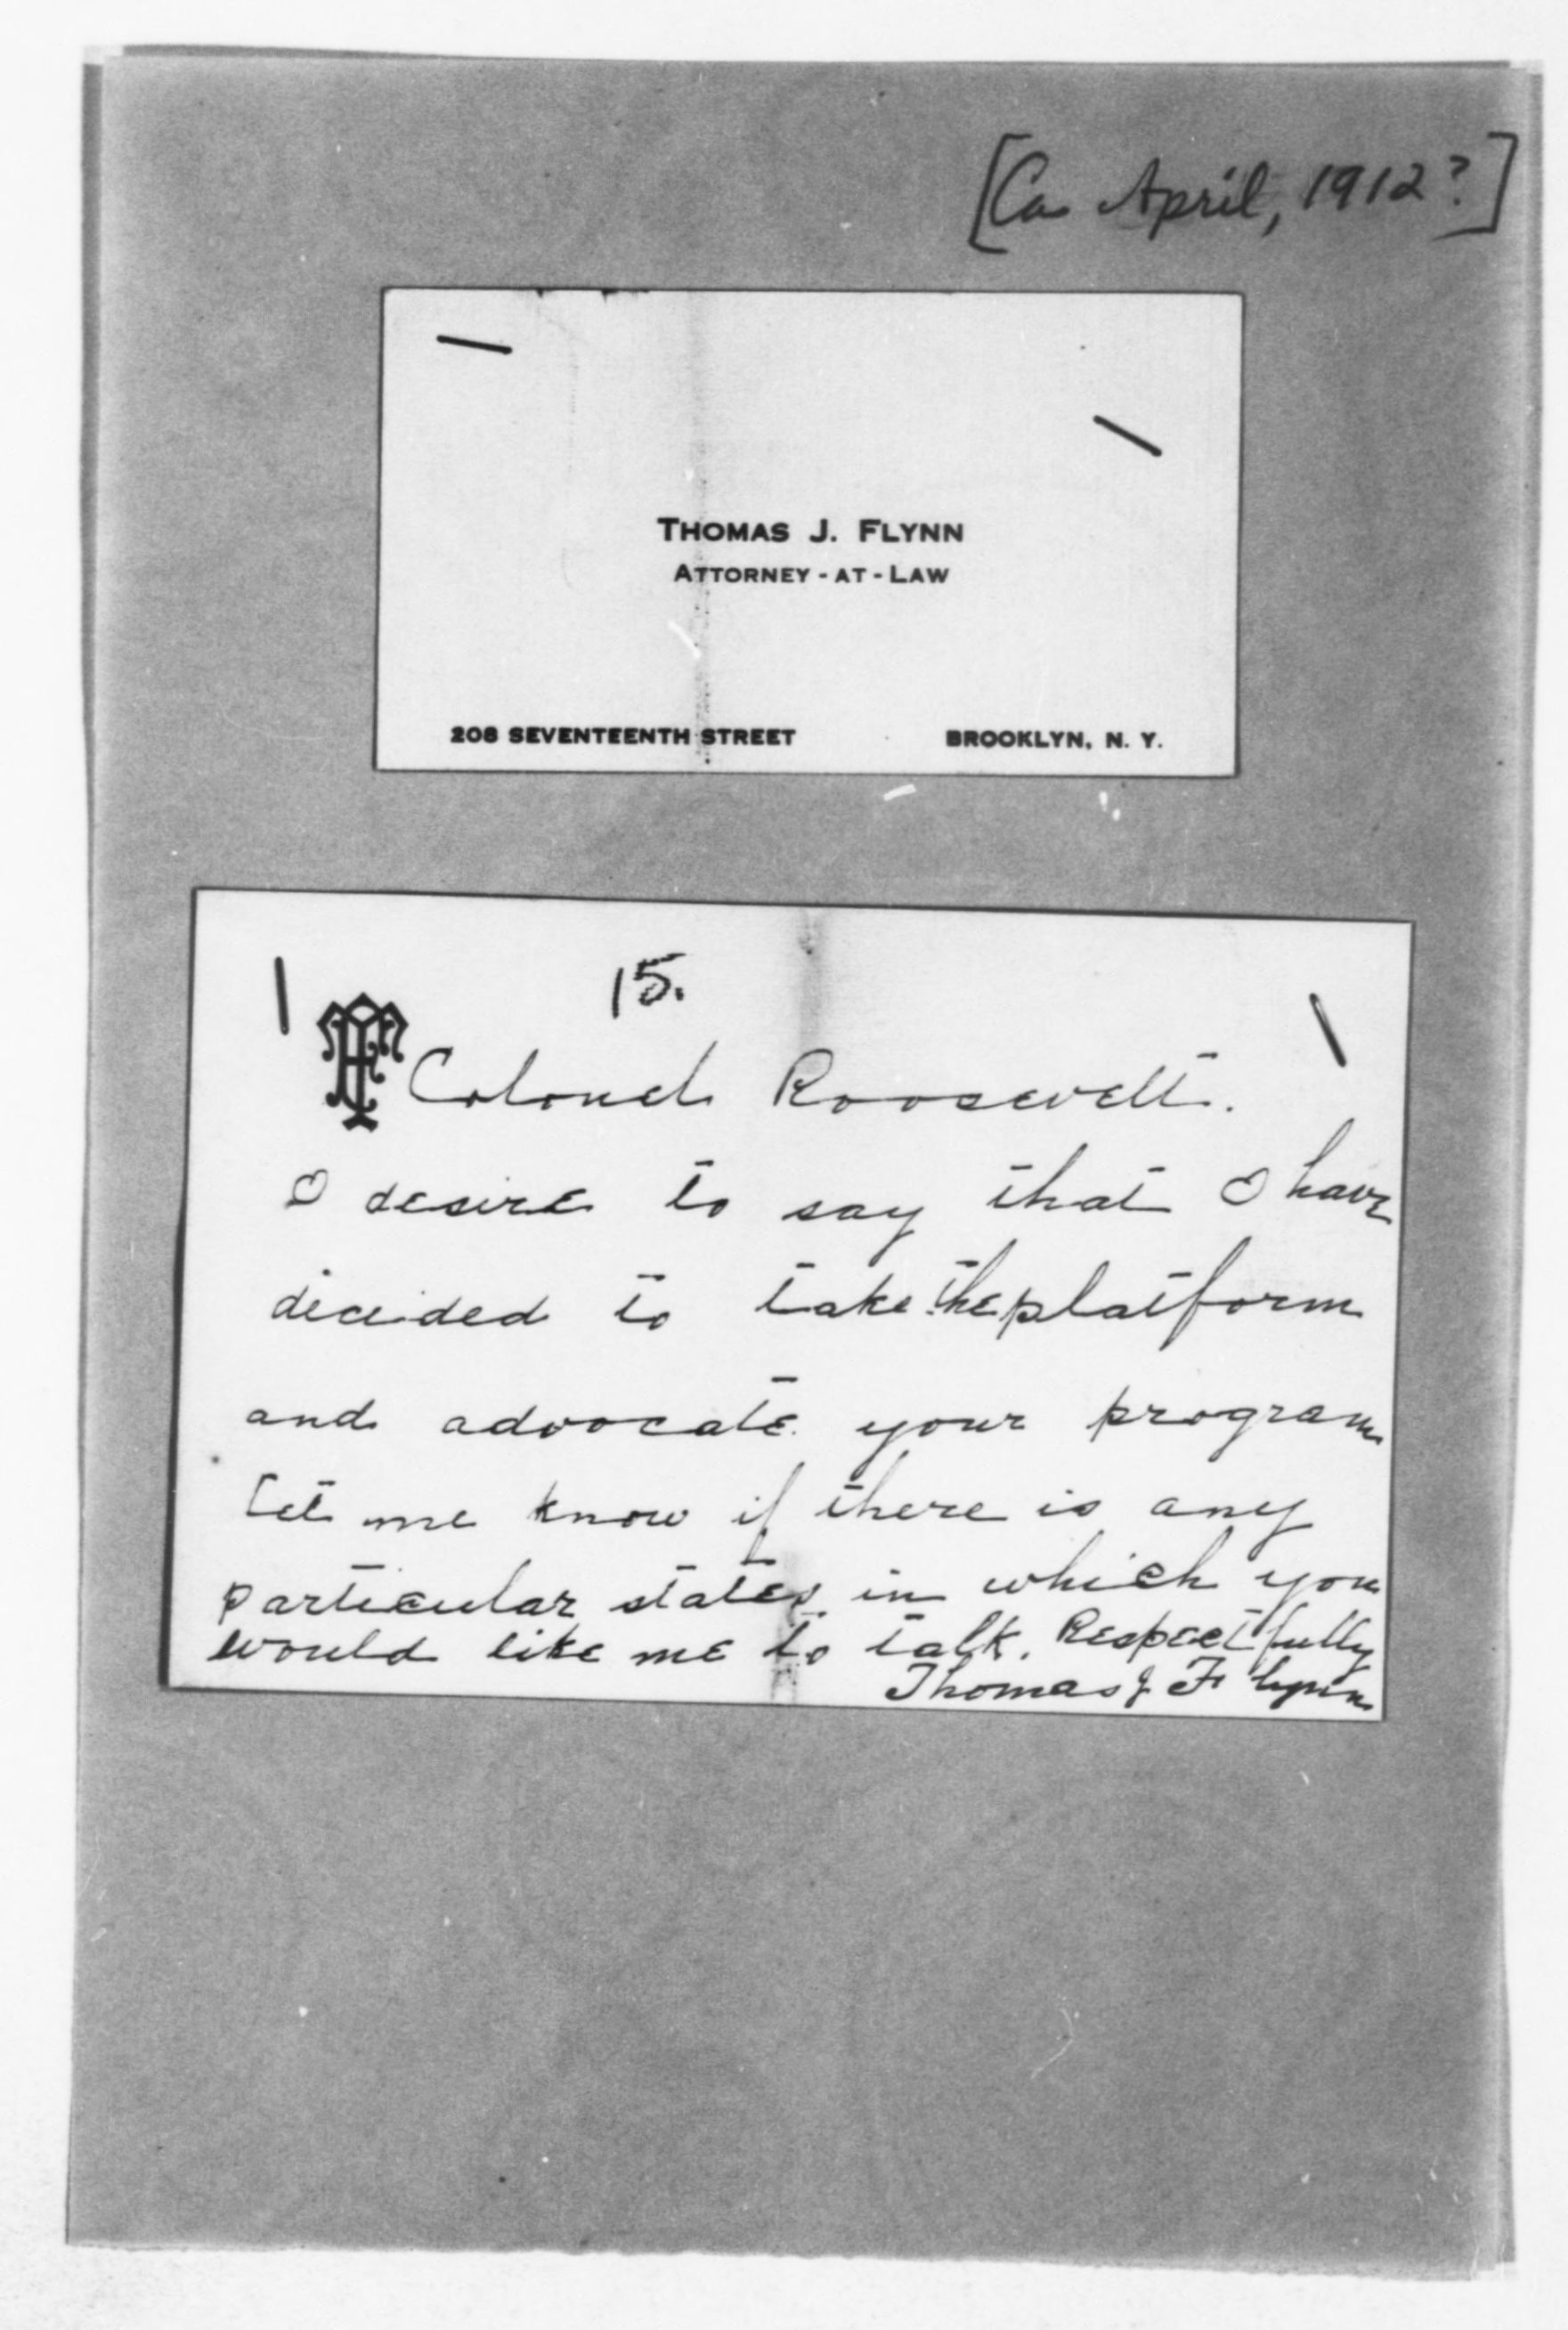 [Ca April, 1912?]
THOMAS J. FLYNN
ATTORNEY-AT-LAW
208 SEVENTEENTH STREET BROOKLYN, N. Y.
15.
Colonel Roosevelt.
I desire to say that I have
decided to take the platform
and advocate your program
Let me know if there is any
particular states in which you
would like me to talk. Respectfully
Thomas J Flynn